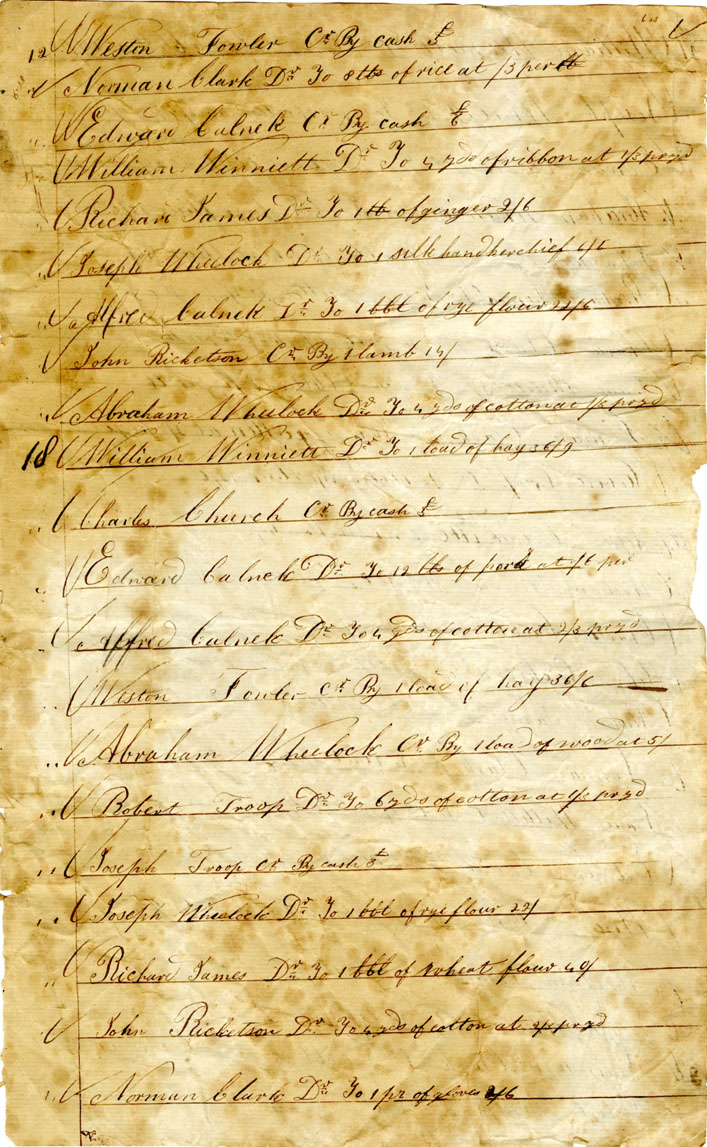 12 Weston Fowler Cr By cash £
Norman Clark Dr To 8 lbs of rice at /3 per lb
" Edward Calnek Cr By cash £
" William Winniett Dr To 4 yds of ribbon at pr yd
" Richard James Dr To 1 lb of ginger 2/6
" Joseph Wheelock Dr To 1 silk handkerchief
" Alfred Calnek Dr To 1 bbl of rye flour 22/6
" John Ricketson Cr By 1 lamb
" Abraham Wheelock Dr To 4 yds of cotton at pr yd
18 William Winniett Dr To 1 load of hay 36/9
" Charles Church Cr By cash £
" Edward Calnek Dr To 12 lbs of pork at /6 per
" Alfred Calnek Dr To 4 yds of cotton at 2/3 pr yd
" Weston Fowler Cr By 1 load of hay 36/6
" Abraham Wheelock Cr By 1 load of wood at 5/
" Robert Troop Dr To 6 yds of cotton at pr yd
" Joseph Troop Cr By cash £
" Joseph Wheelock Dr To 1 bbl of rye flour 22/
" Richard James Dr To 1 bbl of wheat flour 40/
" John Ricketson Dr To 4 yds of cotton at pr yd
" Norman Clark Dr To 1 pr of gloves 2/6